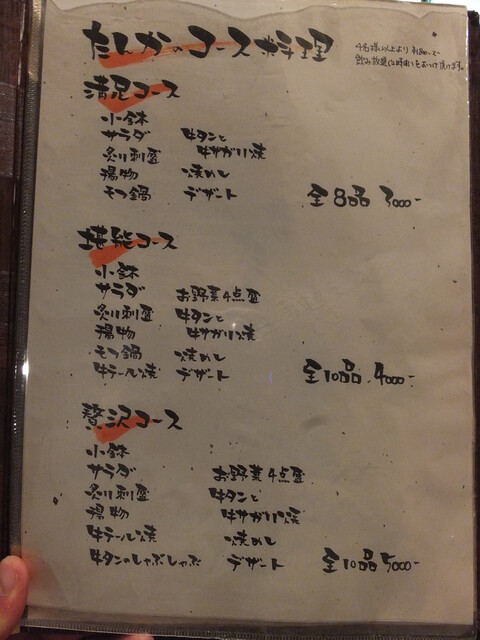 たんかのコース料理
4名様以上より ¥1,500-で
飲み放題(2時間)をおつけ頂けます。
満足コース
小鉢
サラダ 牛タンと
炙り刺盛 牛サガリ焼
揚物 焼めし
モツ鍋 デザート
全8品 3000-
堪能コース
小鉢
サラダ お野菜4点盛
炙り刺盛 牛タンと
揚物 牛サガリ焼
モツ鍋 焼めし
牛テール焼 デザート
全10品 4000-
贅沢コース
小鉢
サラダ お野菜4点盛
炙り刺盛 牛タンと
揚物 牛サガリ焼
牛テール焼 焼めし
牛タンのしゃぶしゃぶ デザート
全10品 5000-